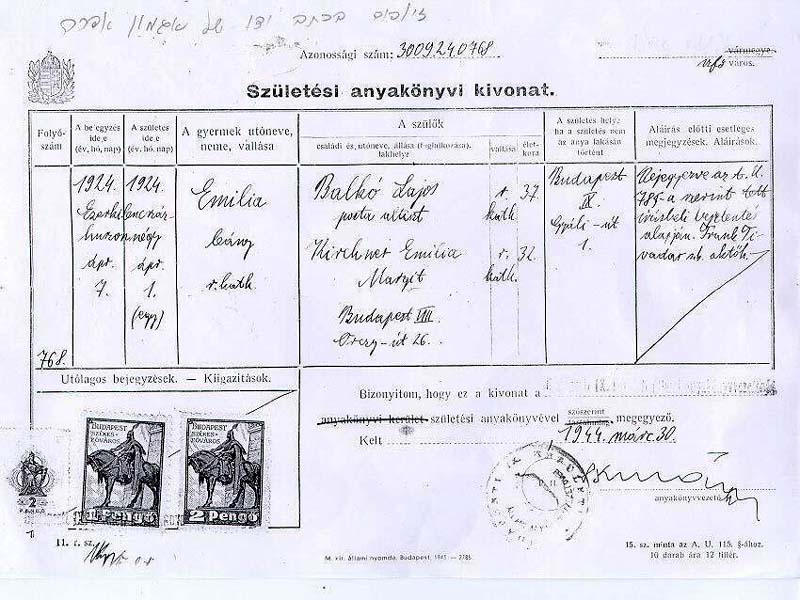 זילבים בכתב ידו של אגמון אפרת
Azonossági szám: 3009240768
vármegye
város.
Születési anyakönyvi kivonat.
Folyó-
szám
A bejegyzés
ideje
(év, hó, nap)
A születés
ideje
(év, hó, nap)
A gyermek utóneve,
neme, vallása
A szülők
családi és utóneve, állása (foglalkozása),
lakhelye
vallása
élet-
kora
A születés helye
ha a születés nem
az anya lakásán
történt
Aláírás előtti esetleges
megjegyzések. Aláírások.
768.
1924.
Ezerkilencszáz-
huszonnégy
ápr.
7.
1924.
ápr.
1.
(egy)
Emilia
leány
r. kath.
Balkó Lajos
posta altiszt
Kirchner Emilia
Margit
Budapest VIII
Orczy-út 26.
r.
kath.
r.
kath.
37.
32.
Budapest
IX.
Gyáli-út
1.
Bejegyezve az t. A.
785-a szerint tett
írásbeli bejelentés
alapján. Frank Ti-
vadar sk.
Utólagos bejegyzések. — Kiigazítások.
Bizonyítom, hogy ez a kivonat a
anyakönyvi kerület születési anyakönyvével szószerint megegyező.
Kelt 1944. márc. 30.
anyakönyvvezető
BUDAPEST
SZÉKES-
FŐVÁROS
1 Pengő
BUDAPEST
SZÉKES-
FŐVÁROS
2 Pengő
2
11. r. sz.
M. kir. állami nyomda, Budapest, 1943 — 2785.
15. sz. minta az A. U. 115. §-ához.
10 darab ára 12 fillér.